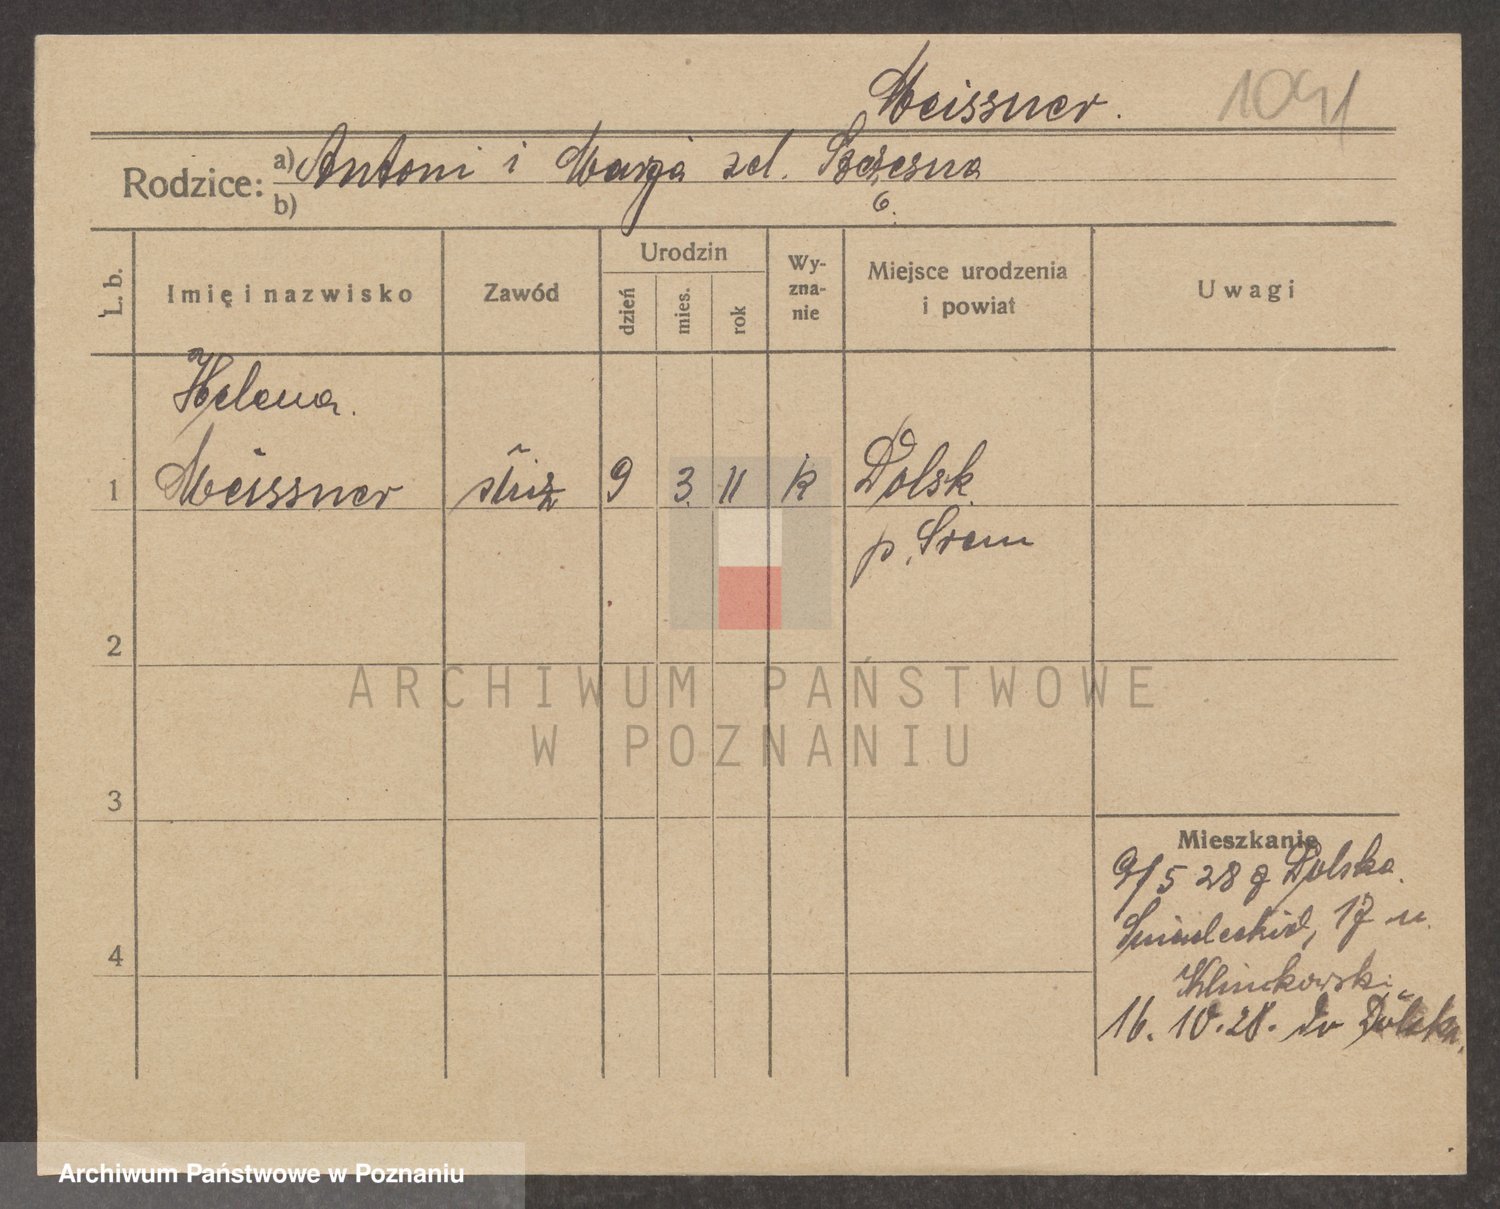 Meissner. 1091
Rodzice: a) Antoni i Marja zd. Szczesna
b) 6.
L. b. Imię i nazwisko Zawód Urodzin Wyznanie Miejsce urodzenia i powiat Uwagi
dzień mies. rok
Helena.
1 Meissner służ 9 3 11 k Dolsk
p. Śrem
2
ARCHIWUM PAŃSTWOWE
W POZNANIU
3
Mieszkanie
9/5 28 z Dolska.
Śniadeckich, 17 u
4
Klinkowski
16. 10. 28. do Dolska.
Archiwum Państwowe w Poznaniu